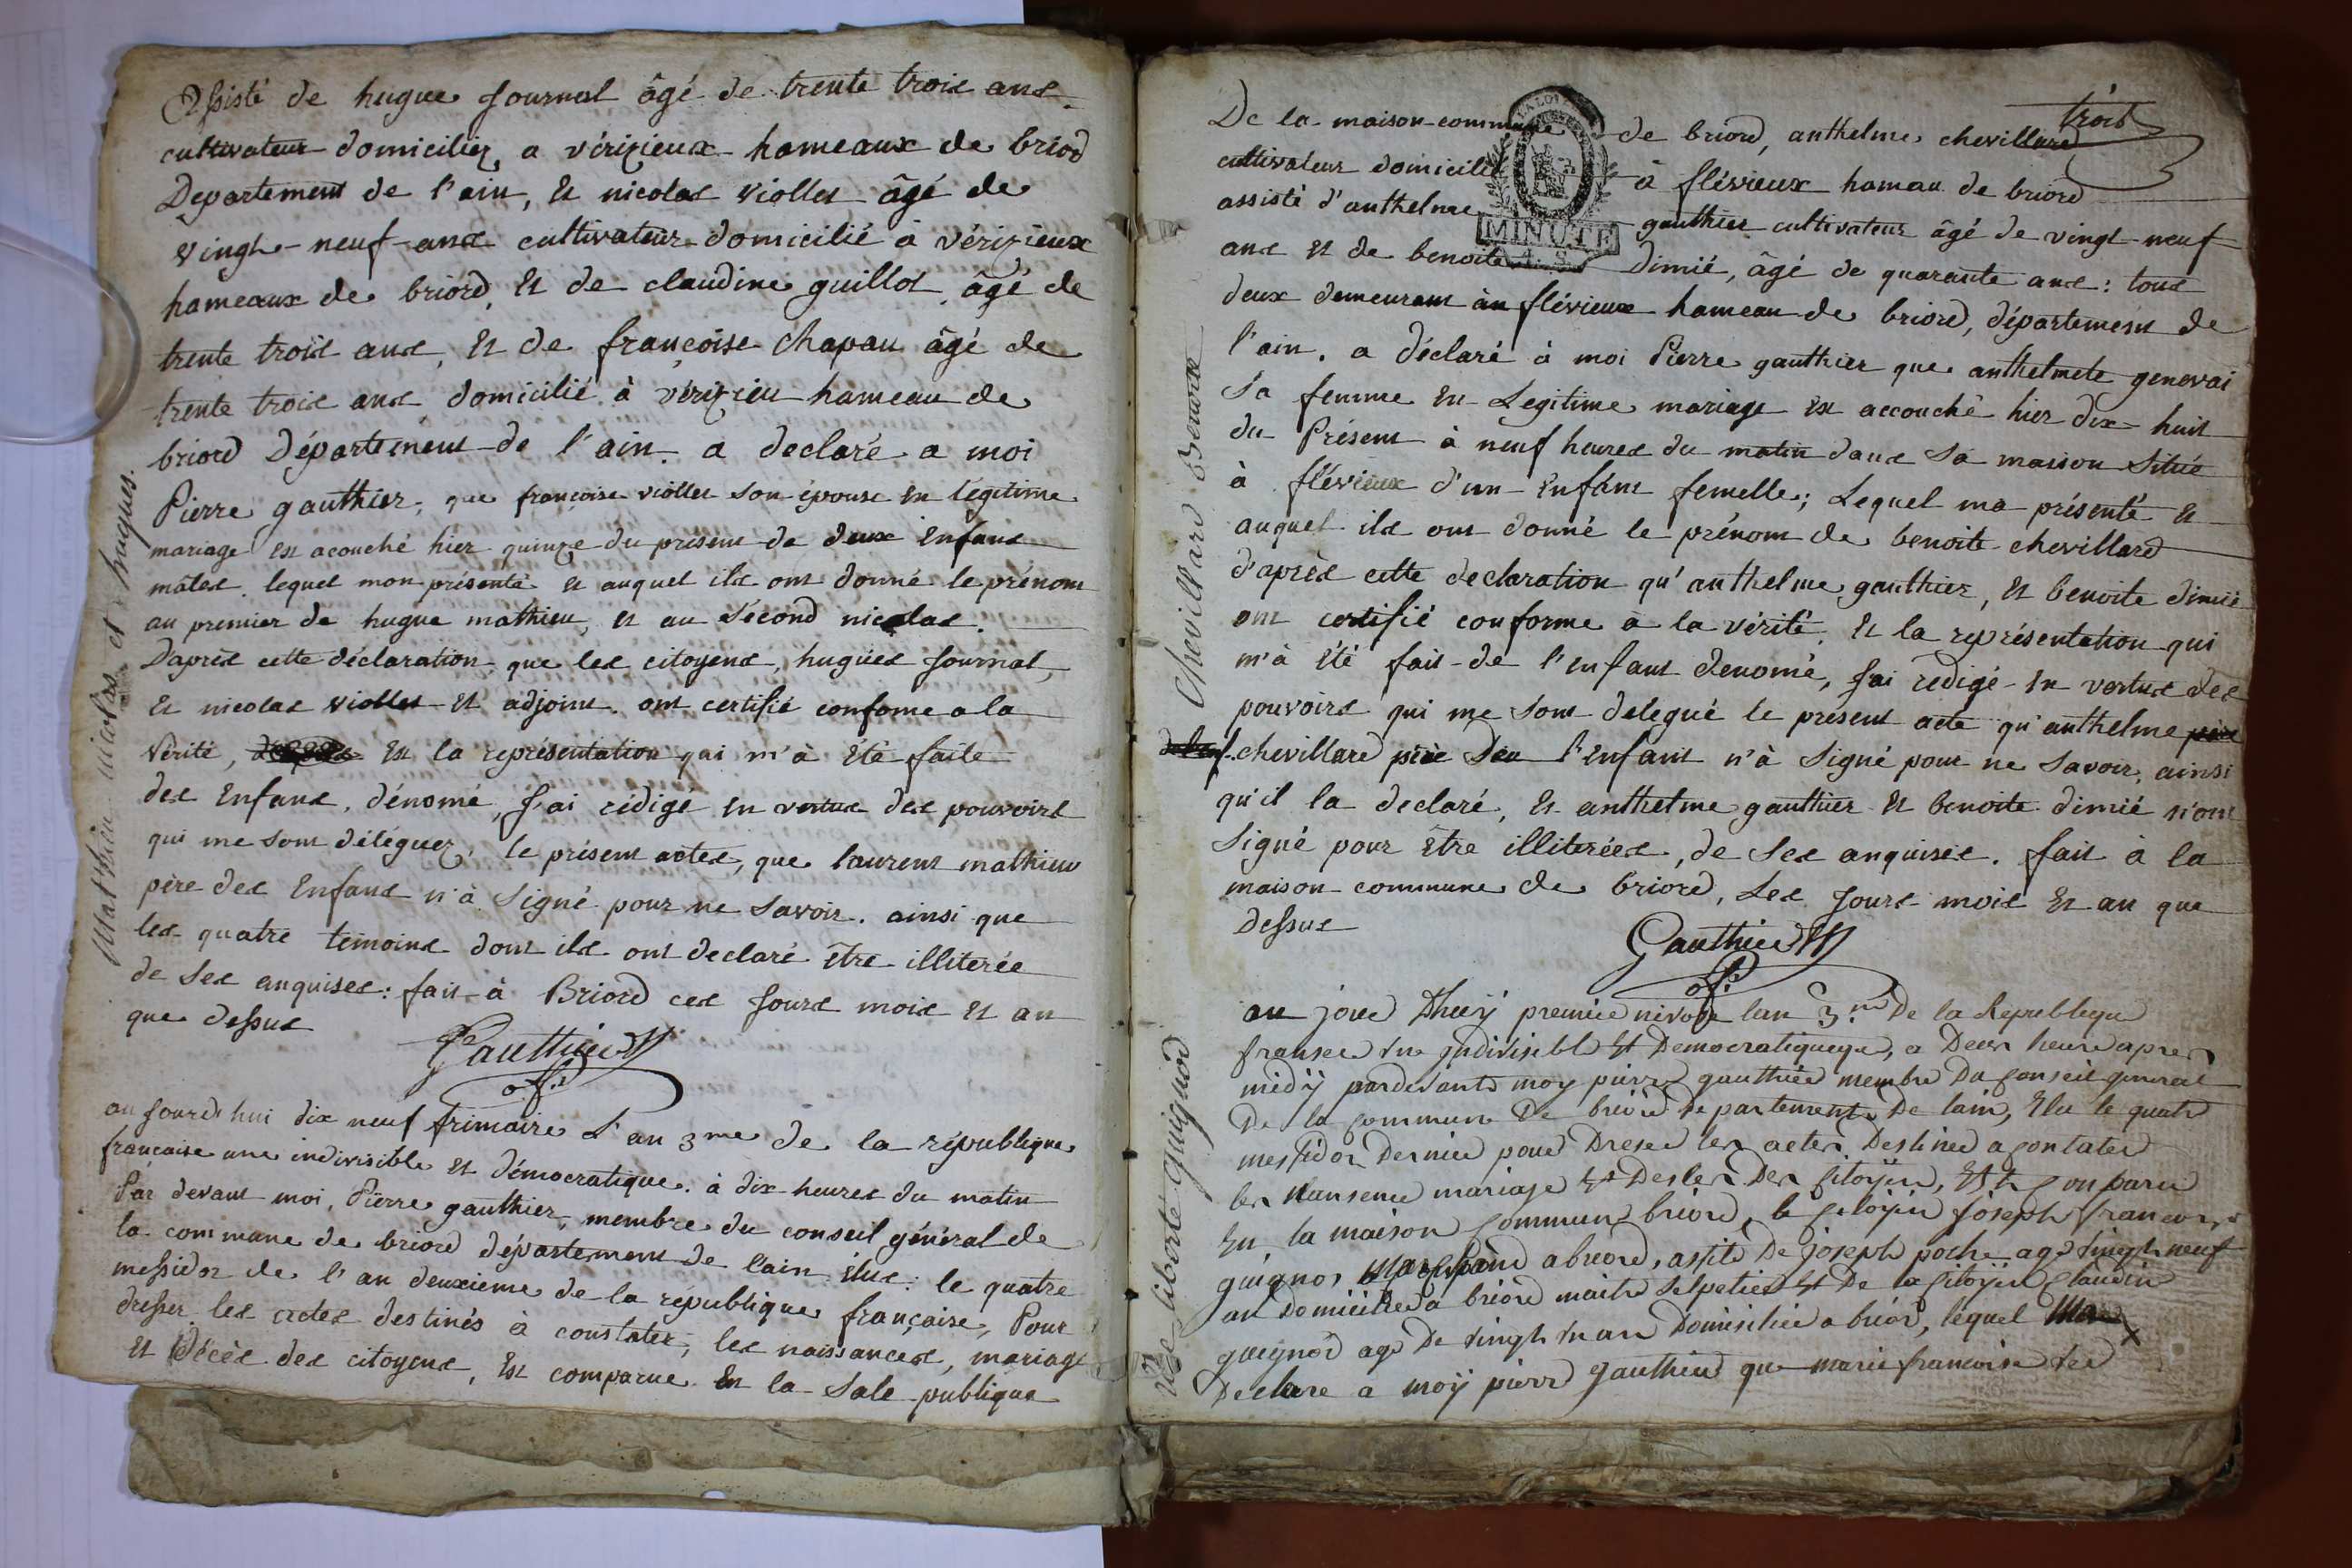 Assisté de hugue Journal âgé de trente trois ans.
cultivateur domiciliez a vérizieux hameaux de briod
Departement de l'ain, et nicolas viollet âgé de
vingt-neuf ans cultivateur domicilié à vérizieux
hameaux de briord, et de claudine guillot âgé de
trente trois ans, et de françoise Chapau âgé de
trente trois ans domicilié à vérizieu hameau de
briord Département de l'ain. a declaré a moi
Pierre gauthier, que françoise viollet son épouse en légitime
mariage est acouché hier quinze du présent de deux Enfans
mâles. lequel mon présenté et auquel ils ont donné le prénom
au premier de hugue mathieu, et au sécond nicolas.
Daprès cette déclaration que les citoyens, hugues Journal,
et nicolas viollet et adjoint. ont certifié confome a la
Vérité, et la représentation qui m'à été faite
des Enfans, dénomé, J'ai rédigé en vertus des pouvoirs
qui me sont déléguez, le présent actes, que laurent mathieu
père des Enfans n'à Signé pour ne savoir. ainsi que
les quatre témoins dont ils ont declaré être illiterée
de ses enquises: fait à Briord ces Jours mois et an
que dessus
Gauthier
of.
Matthieu nicolas et hugues.
aujourd'hui dix neuf frimaire L'an 3me de la république
française une indivisible et démocratique. à dix heures du matin
Par devant moi, Pierre gauthier, membre du conseil général de
la commune de briord département de l'ain élue: le quatre
messidor de l'an deuxieme de la république française, Pour
dresser les actes destinés à constater, les naissances, mariage
et Décès des citoyens, Est comparue en la Sale publique
trois
De la maison commune de briord, anthelme chevillard
cultivateur domicilié à flévieux hameau de briord
assisté d'anthelme gauthier cultivateur âgé de vingt neuf
MINUTE
ans et de benoite dimié, âgé de quarante ans: tous
deux demeurant àu flévieux hameau de briord, département de
l'ain. a déclaré à moi Pierre gauthier que anthelmete genevai
Sa femme en Legitime mariage est accouché hier dix-huit
du Présent à neuf heures du matin dans sa maison Situé
à flévieux d'un Enfant femelle; Lequel ma présenté et
auquel ils ont donné le prénom de benoite chevillard
d'après cette declaration qu'anthelme gauthier, et benoite dimié
ont certifié conforme à la vérité, et la représentation qui
m'à été fait de l'enfant denomé, J'ai redigé en vertus des
pouvoirs qui me sont delegué le présent acte qu'anthelme
chevillard père den l'enfant n'à Signé pour ne savoir, ainsi
qu'il la declaré, et anthelme gauthier et benoite dimié n'ont
Signé pour être illiterées, de ses enquises. fait à la
maison commune de briord, Les Jours mois et an que
dessus
Gauthier
of.
Chevillard Benoite
au jour Dhuÿ premiée nivose lan 3me De la Republique
fransee une Indivisible Et Democratiqueque, a Deux heure apres
midÿ pardevants moy pierre gauthier membre Du Conseil general
De la Commun De briord departements De lain, Elu le quatr
messidor Dernier pour Dresee les actes Destinee a Contater
les Naissence mariage Et Desces Des Citoÿen, Est Conparu
En la maison Commun briord, le Citoÿen Joseph francois
guignod a briord, assite De joseph poche age vingt neuf
an Domicilie a briord maitre Salpetier Et De la Citoÿen Claudin
guignod age De vingt un an Domicilié a briord, lequel
Declare a moÿ pierre gauthier que marie francoise
liberte guignod